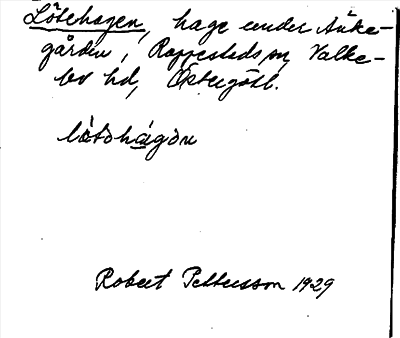 Lötehagen, hage under Änke-
gården, Rappestads sn, Valke-
bo hd, Östergötl.
lö̀təhágən
Robert Pettersson 1929